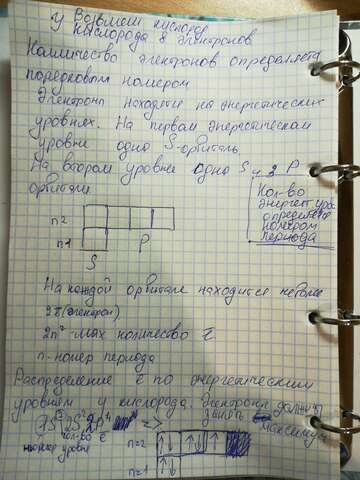 Возьмем кислород
у кислорода 8 электронов
Количество электронов определяета
порядковым номером
Электроны находятся на энергетических
уровнях. На первом энергетическом
уровне одна S-орбиталь
На втором уровне одна S и 3 P
орбитали
Кол-во
энергет. уров
определяета
номером
периода
n=2
n=1
S
P
На каждой орбитале находится не более
2ē (электрон)
2n² - мах количество ē
n - номер периода
Распределение ē по энергетическим
уровням у кислорода. Электроны должны
1S² 2S² 2P⁴ =>
кол-во ē
номер уровня
максимум
n=2
n=1